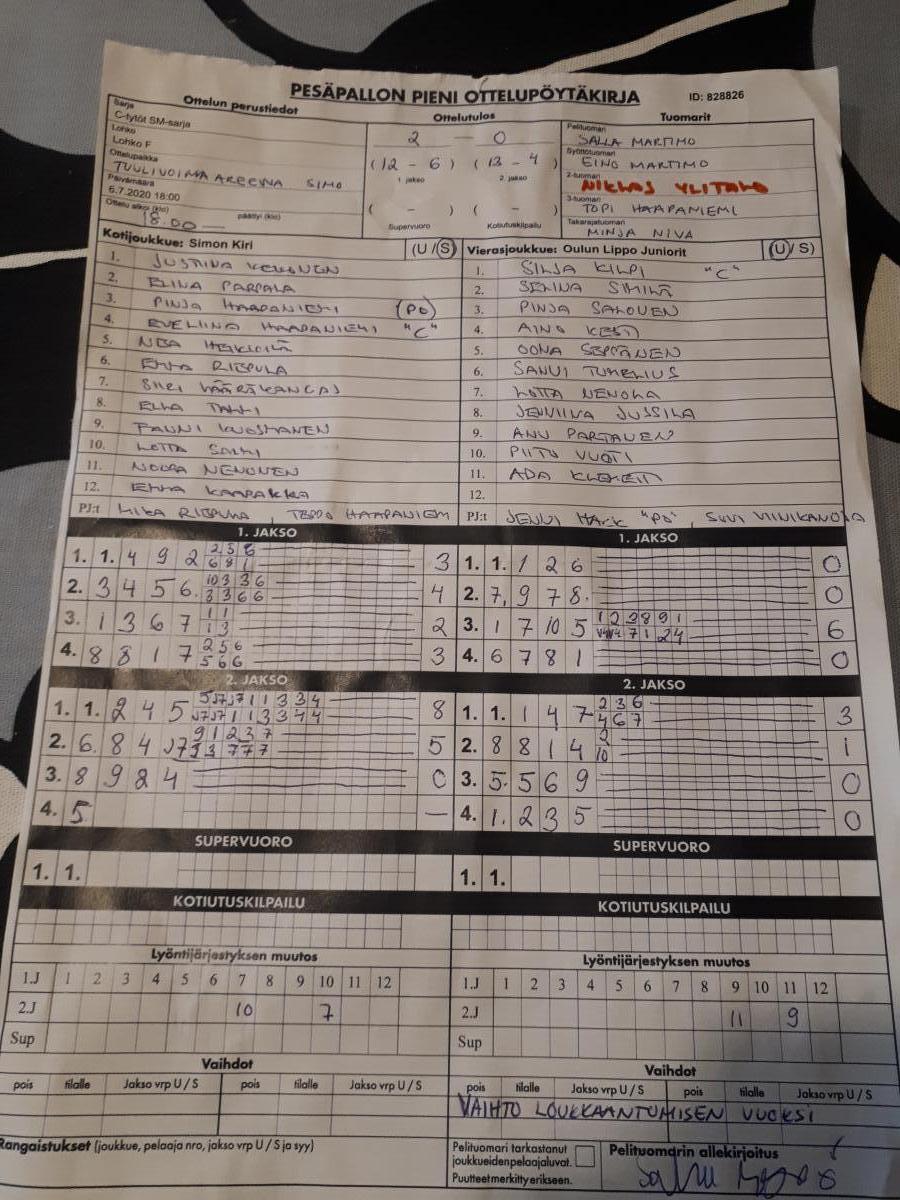 PESÄPALLON PIENI OTTELUPÖYTÄKIRJA ID: 828826
Ottelun perustiedot Ottelutulos Tuomarit
Sarja
C-tytöt SM-sarja
Lohko
Lohko F
Ottelupaikka
TUULIVOIMA AREENA SIMO
Päivämäärä
6.7.2020 18:00
Ottelu alkoi (klo) 18.00 päättyi (klo) —
2 — 0
(12 - 6) (13 - 4)
1. jakso 2. jakso
( - ) ( - )
Supervuoro Kotiutuskilpailu
Pelituomari
SALLA MARTIMO
Syöttötuomari
EINO MARTIMO
2-tuomari
NIKLAS YLITALO
3-tuomari
TOPI HAAPANIEMI
Takarajatuomari
MINJA NIVA
Kotijoukkue: Simon Kiri (U / S)
1. JUSTIINA
2. ELINA PARPALA
3. PINJA HAAPANIEMI (PO)
4. EVELIINA HAAPANIEMI "C"
5. NEA HEIKKILÄ
6. EMMA RIEPULA
7. SIIRI VÄÄRÄKANGAS
8. ELLA
9. FANNI KUOSMANEN
10. LOTTA
11. NOORA NENONEN
12. EMMA KAARAKKA
PJ:t MIKA RIEPULA, TEPPO HAAPANIEMI
Vierasjoukkue: Oulun Lippo Juniorit (U / S)
1. SILJA KILPI "C"
2. SENNA SIMILÄ
3. PINJA SALOVEN
4. AINO KESTI
5. OONA SEPPÄNEN
6. SANNI TUHELIUS
7. LOTTA NENOLA
8. JENNIINA JUSSILA
9. ANU PARTANEN
10. PIITU VUOTI
11. ADA KLEMETTI
12.
PJ:t JENNI "PO", SUVI VINIKANOJA
1. JAKSO
1. 1. 4 9 2 2 5 8 3
6 8 1
2. 3 4 5 6. 10 3 3 6 4
3 3 6 6
3. 1 3 6 7 1 1 2
1 3
4. 8 8 1 7 2 5 6 3
5 6 6
1. JAKSO
1. 1. 1 2 6 0
2. 7, 9 7 8. 0
3. 1 7 10 5 1 2 3 8 9 1 6
7 1 2 4
4. 6 7 8 1 0
2. JAKSO
1. 1. 2 4 5 8
2. 6. 8 4 J7 9 1 2 3 7 5
3 3 7 7 7
3. 8 9 2 4 0
4. 5 —
2. JAKSO
1. 1. 1 4 7 2 3 6 3
4 6 7
2. 8 8 1 4 2 1
10
3. 5. 5 6 9 0
4. 1. 2 3 5 0
SUPERVUORO SUPERVUORO
1. 1. 1. 1.
KOTIUTUSKILPAILU KOTIUTUSKILPAILU
Lyöntijärjestyksen muutos
1.J 1 2 3 4 5 6 7 8 9 10 11 12
2.J 10 7
Sup
Lyöntijärjestyksen muutos
1.J 1 2 3 4 5 6 7 8 9 10 11 12
2.J 11 9
Sup
Vaihdot
pois tilalle Jakso vrp U / S pois tilalle Jakso vrp U / S
Vaihdot
pois tilalle Jakso vrp U / S pois tilalle Jakso vrp U / S
VAIHTO LOUKKAANTUMISEN VUOKSI
Rangaistukset (joukkue, pelaaja nro, jakso vrp U / S ja syy)
Pelituomari tarkastanut
joukkueiden pelaajaluvat.
Puutteet merkitty erikseen.
Pelituomarin allekirjoitus